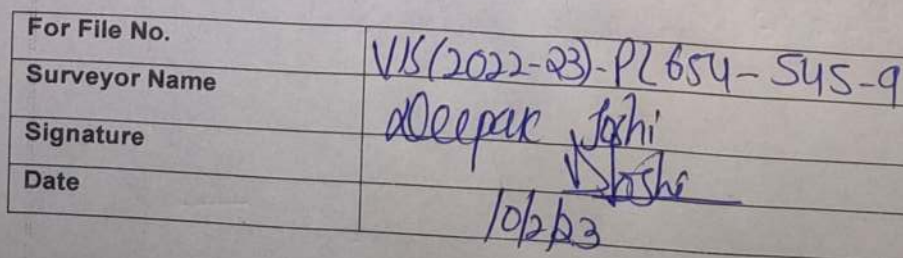 For File No. VIS(2022-23)-PL654-545-9
Surveyor Name Deepak Joshi
Signature DJoshi
Date 10/2/23